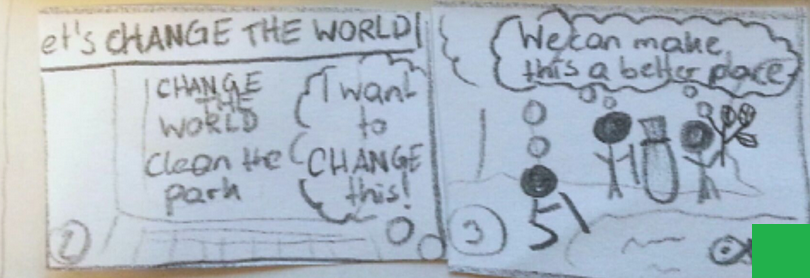 et's CHANGE THE WORLD!
CHANGE
THE
WORLD
Clean the
park
I want
to
CHANGE
this!
2
We can make
this a better place
3